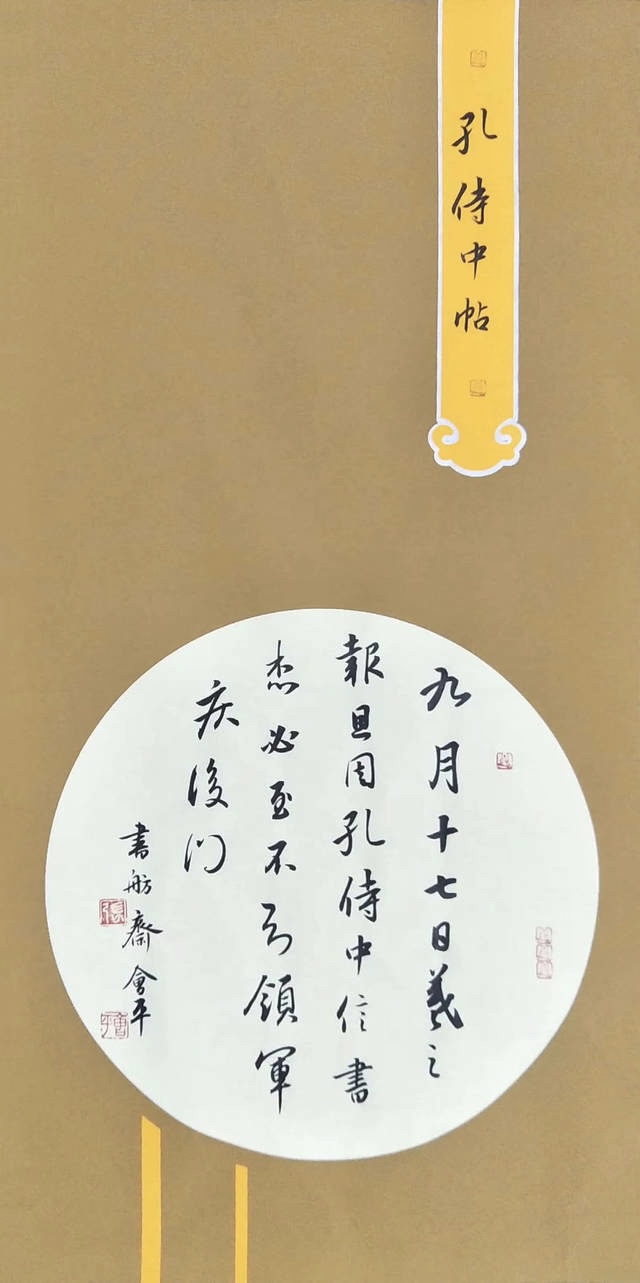 孔侍中帖
九月十七日羲之
報且因孔侍中信書
想必至不知領軍
疾後問
書舫齋會平
張
會平